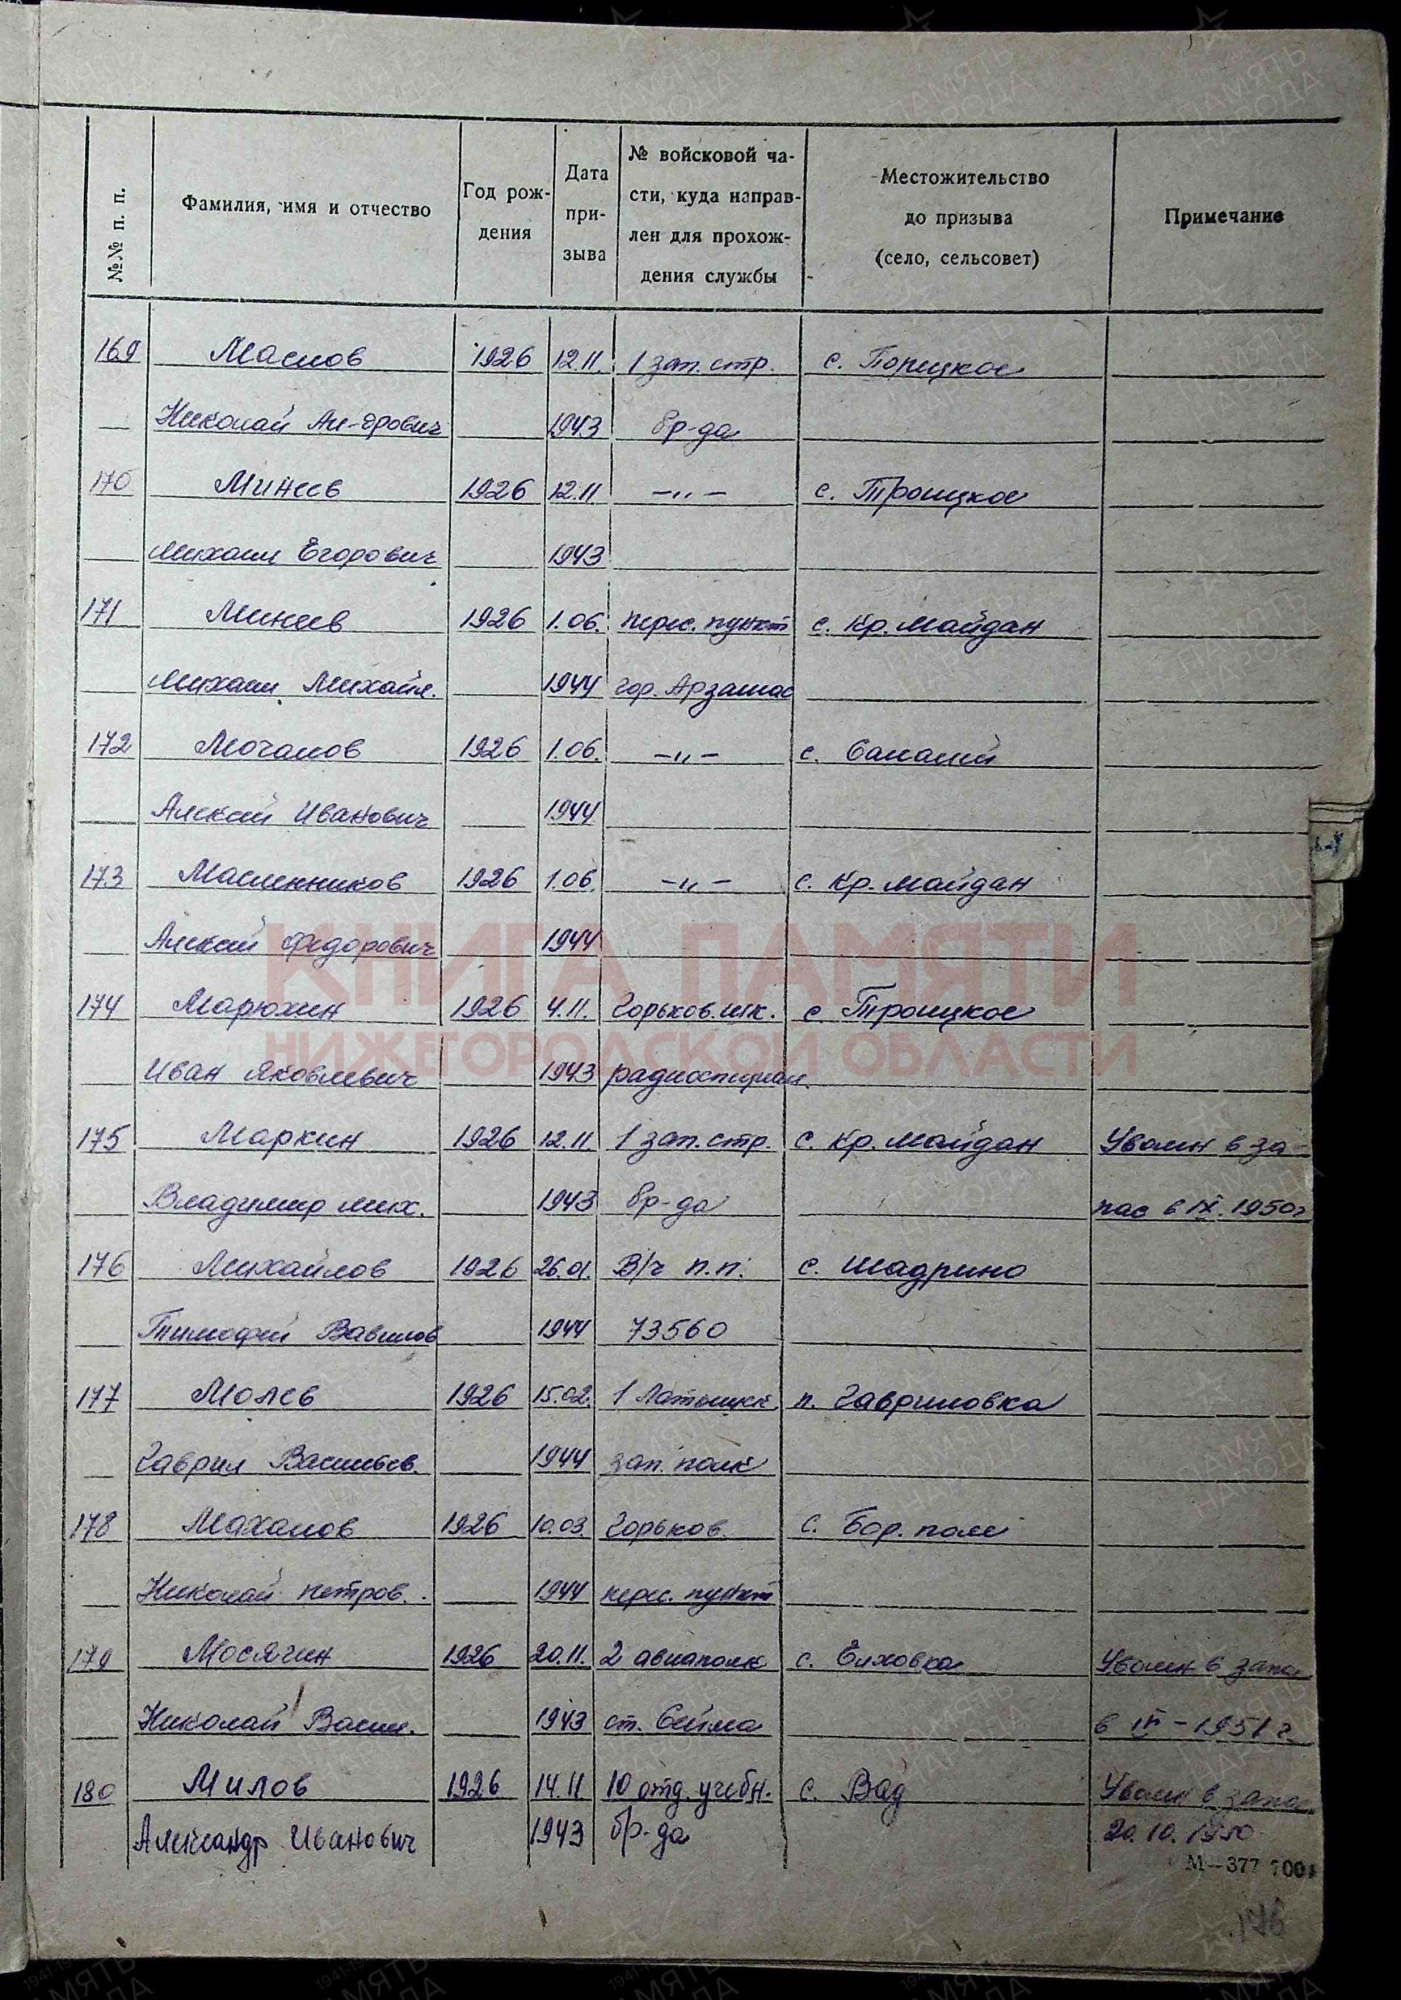 №№ п. п. Фамилия, имя и отчество Год рождения Дата призыва № войсковой части, куда направлен для прохождения службы Местожительство до призыва (село, сельсовет) Примечание
169 Маслов 1926 12.11. 1 зап. стр. с.
Николай 1943 бр-да
170 Минеев 1926 12.11 —„— с. Троицкое
Михаил Егорович 1943
171 Минеев 1926 1.06. перес. пункт с. Кр. Майдан
Михаил Михайл. 1944 гор. Арзамас
172 Мочалов 1926 1.06. —„— с.
Алексей Иванович 1944
173 Масленников 1926 1.06. —„— с. Кр. Майдан
Алексей Федорович 1944
КНИГА ПАМЯТИ
174 Марюхин 1926 4.11. Горьков. шк. с. Троицкое
НИЖЕГОРОДСКОЙ ОБЛАСТИ
Иван Яковлевич 1943 радиоспециал.
175 Маркин 1926 12.11. 1 зап. стр. с. Кр. Майдан Уволен в за-
Владимир Мих. 1943 бр-да пас в IX. 1950г
176 Михайлов 1926 26.01. В/ч п.п. с. Шадрино
Тимофей Вавилов 1944 73560
177 Молев 1926 15.02. 1 Латышск. п. Гавриловка
Гаврил Васильев. 1944 зап. полк
178 Махалов 1926 10.03. Горьков. с. Бор. поле
Николай Петров. 1944 перес. пункт
179 Мосягин 1926 20.11. 2 авиаполк с. Елховка Уволен в запас
Николай Васил. 1943 ст. Сейма в 1951 г.
180 Милов 1926 14.11 10 отд. учебн. с. Вад Уволен в запас
Александр Иванович 1943 бр-да 20.10.1950
М—377 700